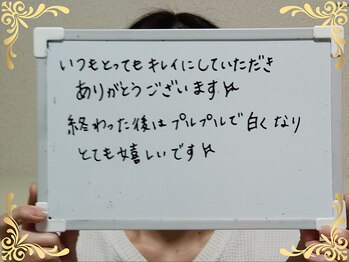 いつもとってもキレイにしていただき
ありがとうございます☆
終わった後はプルプルで白くなり
とても嬉しいです☆